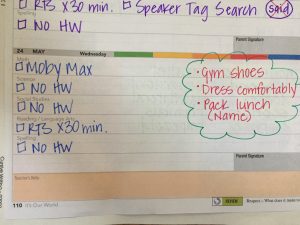 RTS x30 min. Speaker Tag Search (Said)
NO HW
Parent Signature
24 MAY Wednesday
Math
Moby Max
Science
NO HW
Social Studies
NO HW
Reading / Language Arts
RTS x30min.
Spelling
NO HW
• Gym shoes
• Dress comfortably
• Pack lunch
(Name)
Parent Signature
Teacher's Note
110 It's Our World